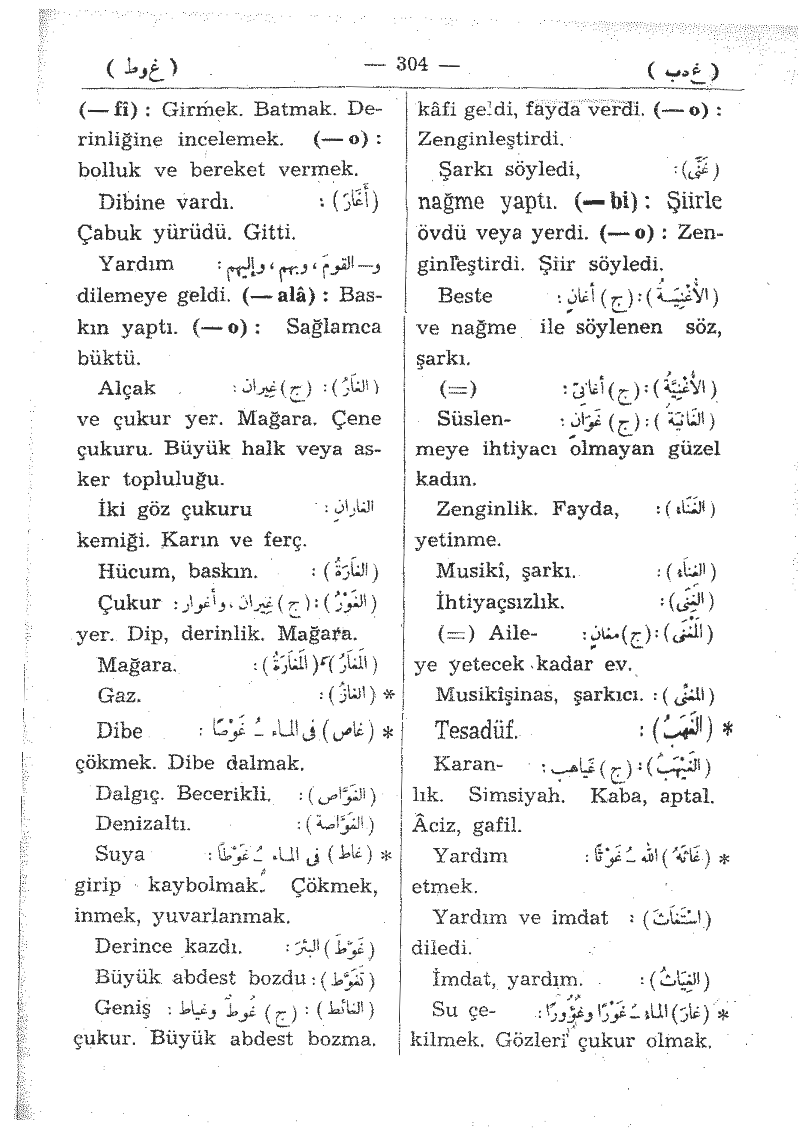 ( غهب ) — 304 — ( غوط )
kâfi geldi, fayda verdi. (— o) :
Zenginleştirdi.
(غَنَّى): Şarkı söyledi,
nağme yaptı. (— bi) : Şiirle
övdü veya yerdi. (— o) : Zen-
ginleştirdi. Şiir söyledi.
(الأُغْنِيَةُ):(ج) أغانٍ : Beste
ve nağme ile söylenen söz,
şarkı.
(الأُغْنِيَّةُ):(ج) أغانيّ: (=)
(الغَانِيَةُ):(ج) غَوَانٍ: Süslen-
meye ihtiyacı olmayan güzel
kadın.
(الغَنَاء): Zenginlik. Fayda,
yetinme.
(الغِنَاء): Musikî, şarkı.
(الغِنَى): İhtiyaçsızlık.
(المَغْنَى):(ج) مغانٍ: (=) Aile-
ye yetecek kadar ev.
(المُغَنِّى): Musikîşinas, şarkıcı.
* (الغَهَبُ): Tesadüf.
(الغَيْهَبُ):(ج) غَياهب: Karan-
lık. Simsiyah. Kaba, aptal.
Âciz, gafil.
* (غَاثَهُ) اللهُ ـُ غَوْثًا: Yardım
etmek.
(اسْتَغَاثَ) : Yardım ve imdat
diledi.
(الغِيَاثُ): İmdat, yardım.
* (غَارَ) الماء ـُ غَوْرًا وغُؤُورًا: Su çe-
kilmek. Gözleri çukur olmak.
(— fî) : Girmek. Batmak. De-
rinliğine incelemek. (— o) :
bolluk ve bereket vermek.
(أَغَارَ) : Dibine vardı.
Çabuk yürüdü. Gitti.
و— القومَ ، وبهم ، وإليهم : Yardım
dilemeye geldi. (— alâ) : Bas-
kın yaptı. (— o) : Sağlamca
büktü.
(الغَارُ): (ج) غيران : Alçak
ve çukur yer. Mağara. Çene
çukuru. Büyük halk veya as-
ker topluluğu.
الغاران : İki göz çukuru
kemiği. Karın ve ferç.
(الغَارَةُ) : Hücum, baskın.
(الغَوْرُ):(ج) غيران، وأغوار: Çukur
yer. Dip, derinlik. Mağara.
(المَغَارُ) ؟ (المَغَارَةُ): Mağara.
* (الغَازُ): Gaz.
* (غاص) فى الماء ـُ غَوْصًا : Dibe
çökmek. Dibe dalmak.
(الغَوَّاص): Dalgıç. Becerikli.
(الغَوَّاصة): Denizaltı.
* (غاط) فى الماء ـُ غَوْطًا : Suya
girip kaybolmak. Çökmek,
inmek, yuvarlanmak.
(غَوَّطَ) البئرَ: Derince kazdı.
(تَغَوَّطَ): Büyük abdest bozdu
(الغائط) : (ج) غُوط وغياط : Geniş
çukur. Büyük abdest bozma.